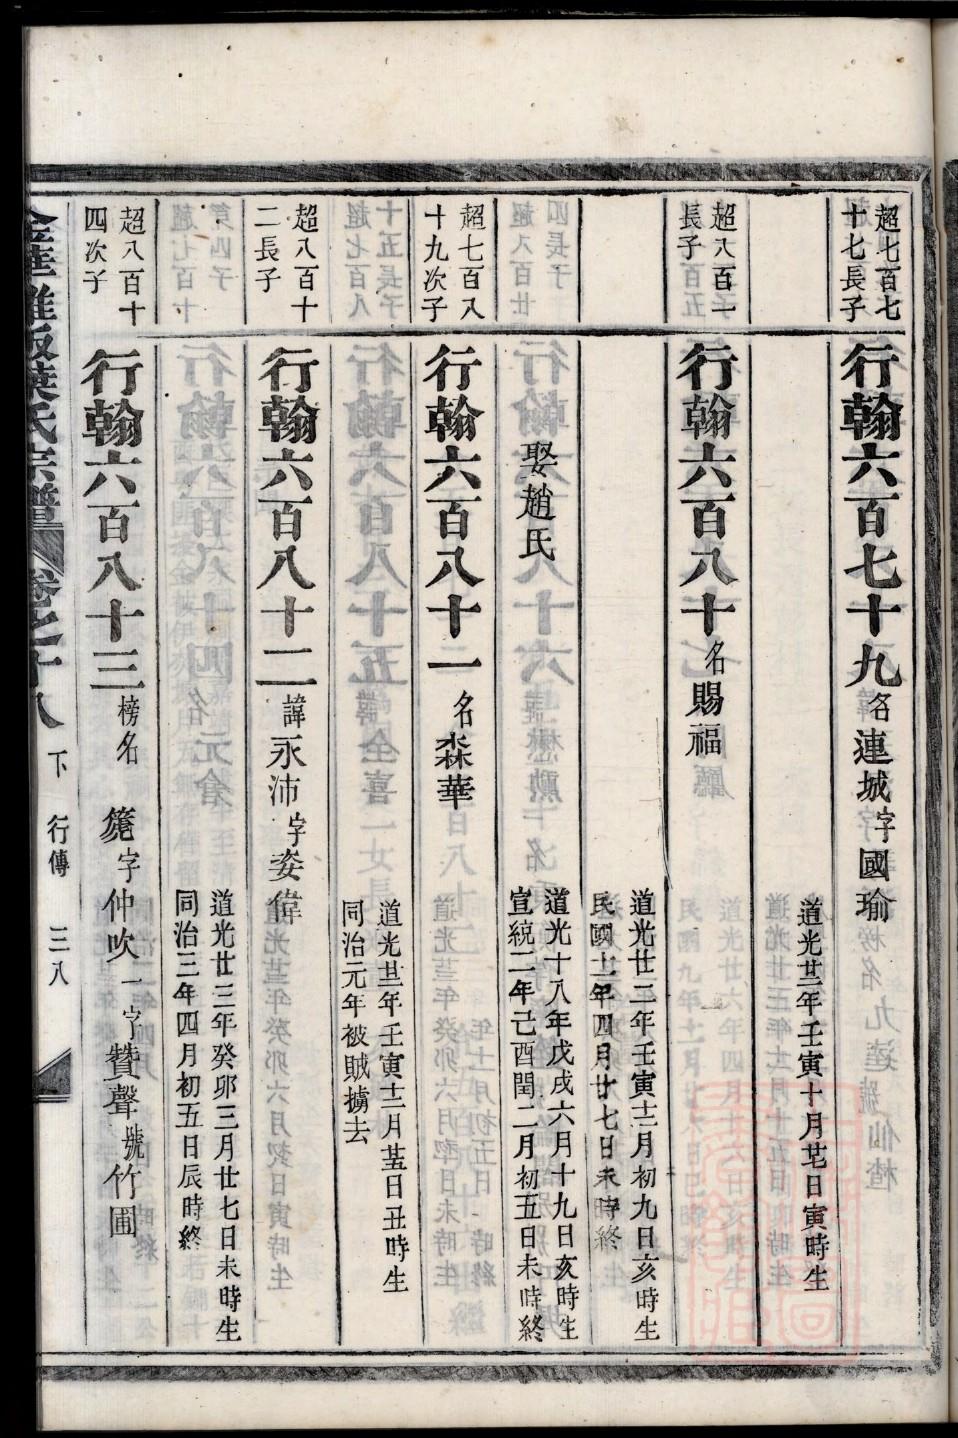 超七百七
十七長子
行翰六百七十九名連城字國瑜
道光廿二年壬寅十月廿七日寅時生
超八百一
長子
行翰六百八十名賜福
道光廿二年壬寅十二月初九日亥時生
民國十二年四月廿七日未時終
娶趙氏
道光十八年戊戌六月十九日亥時生
宣統二年己酉閏二月初五日未時終
超七百八
十九次子
行翰六百八十一名森華
道光廿二年壬寅十二月日丑時生
同治元年被賊擄去
超八百十
二長子
行翰六百八十二諱永沛字姿偉
道光廿三年癸卯三月廿七日未時生
同治三年四月初五日辰時終
超八百十
四次子
行翰六百八十三榜名箎字仲吹一字贊聲號竹圃
金華雅畈葉氏宗譜 卷之十八 下 行傳 三八